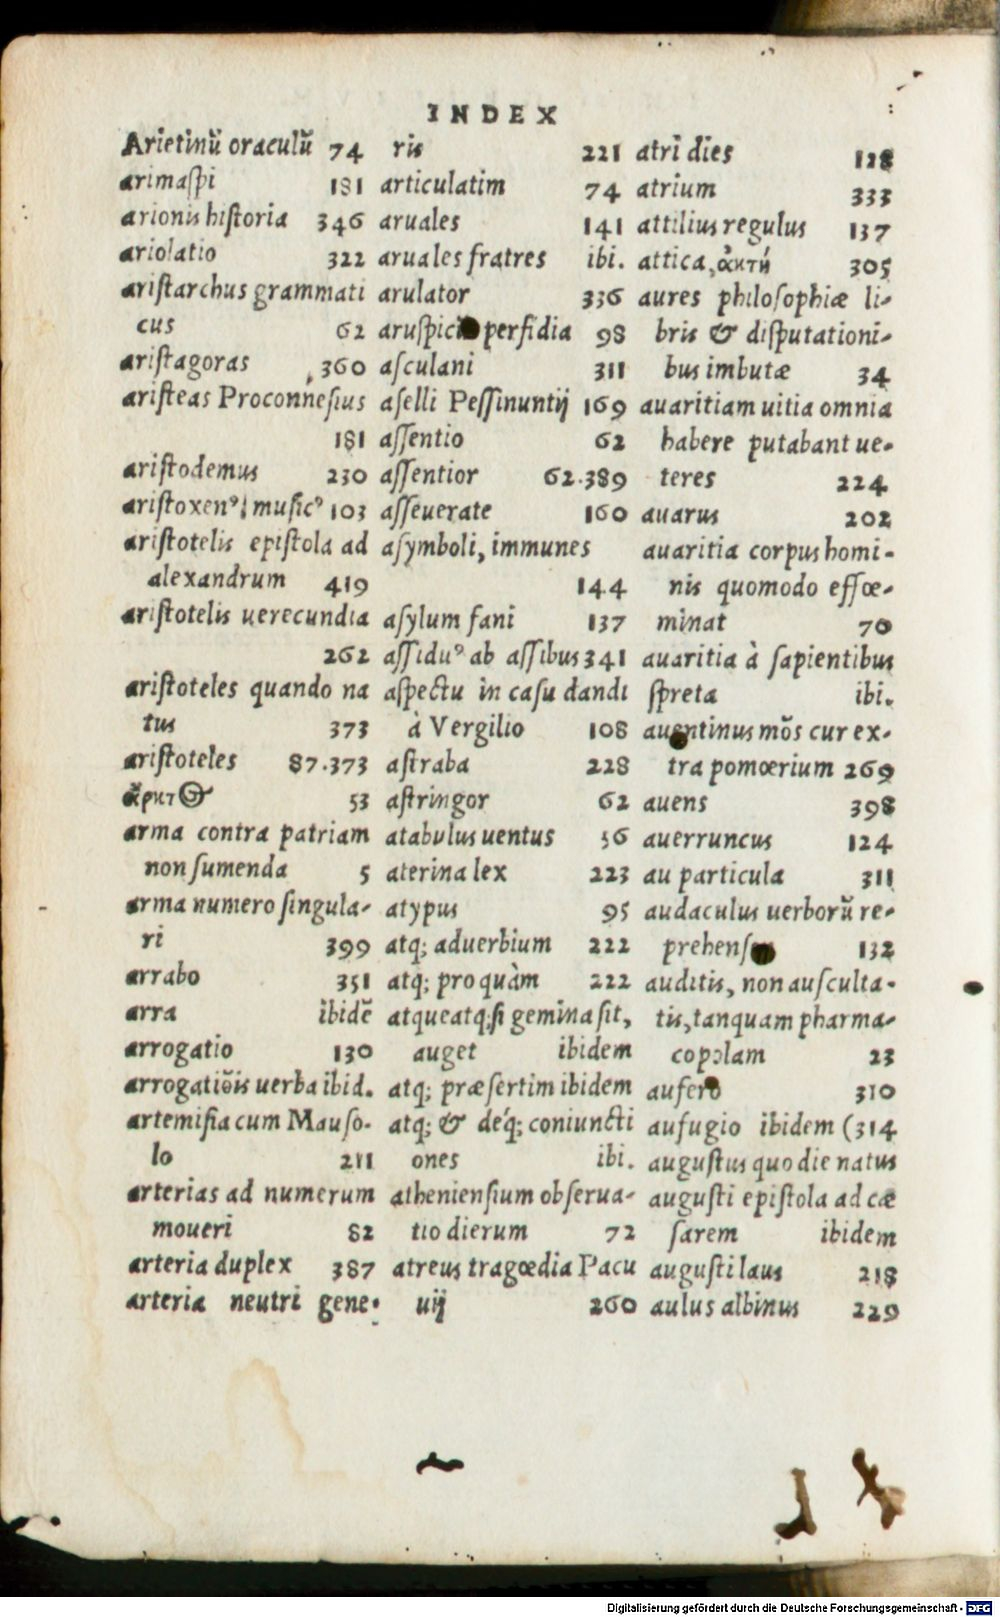 INDEX
Arietinũ oraculũ 74
arimaſpi 181
arionis hiſtoria 346
ariolatio 322
ariſtarchus grammati
cus 62
ariſtagoras 360
ariſteas Proconneſius
181
ariſtodemus 230
ariſtoxenꝰ muſicꝰ 103
ariſtotelis epiſtola ad
alexandrum 419
ariſtotelis uerecundia
262
ariſtoteles quando na
tus 373
ariſtoteles 87.373
53
arma contra patriam
non ſumenda 5
arma numero ſingula-
ri 399
arrabo 351
arra ibidẽ
arrogatio 130
arrogatiõis uerba ibid.
artemiſia cum Mauſo-
lo 211
arterias ad numerum
moueri 82
arteria duplex 387
arteria neutri gene-
ris 221
articulatim 74
aruales 141
aruales fratres ibi.
arulator 336
perfidia 98
aſculani 311
aſelli Peſſinuntij 169
aſſentio 62
aſſentior 62.389
aſſeuerate 160
aſymboli, immunes
144
aſylum fani 137
aſſiduꝰ ab aſſibus 341
aſpectu in caſu dandi
à Vergilio 108
aſtraba 228
aſtringor 62
atabulus uentus 56
aterina lex 223
atypus 95
atq; aduerbium 222
atq; pro quàm 222
atque atq; ſi gemina ſit,
auget ibidem
atq; præſertim ibidem
atq; & déq; coniuncti
ones ibi.
athenienſium obſerua-
tio dierum 72
atreus tragœdia Pacu
uij 260
atri dies 128
atrium 333
attilius regulus 137
attica, ἀκτή 305
aures philoſophiæ li-
bris & diſputationi-
bus imbutæ 34
auaritiam uitia omnia
habere putabant ue-
teres 224
auarus 202
auaritia corpus homi-
nis quomodo effœ-
minat 70
auaritia à ſapientibus
ſpreta ibi.
auentinus mõs cur ex-
tra pomœrium 269
auens 398
auerruncus 124
au particula 311
audaculus uerborũ re-
132
auditis, non auſculta-
tis, tanquam pharma-
copolam 23
aufero 310
aufugio ibidem (314
auguſtus quo die natus
auguſti epiſtola ad cæ
ſarem ibidem
auguſti laus 218
aulus albinus 229
Digitalisierung gefördert durch die Deutsche Forschungsgemeinschaft - DFG